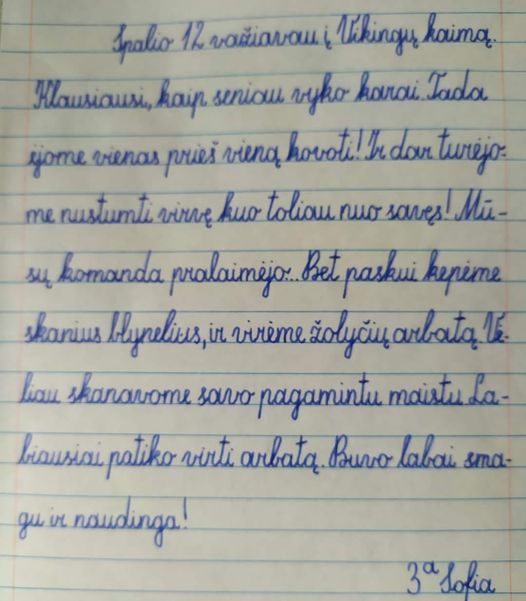 Spalio 12 važiavau į Vikingų kaimą.
Klausiausi, kaip seniau vyko karai. Tada
ėjome vienas prieš vieną kovoti! Ir dar turėjo-
me nustumti virvę kuo toliau nuo savęs! Mū-
sų komanda pralaimėjo... Bet paskui kepėme
skanius blynelius, ir virėme žolyčių arbatą. Vė-
liau skanavome savo pagamintu maistu. La-
biausiai patiko virti arbatą. Buvo labai sma-
gu ir naudinga!
3ᵃ Sofia